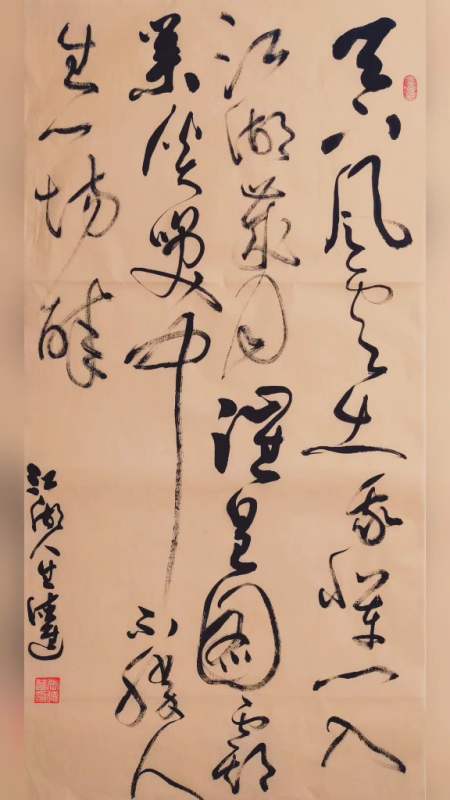 天下风云出我辈一入
江湖岁月谭皇图霸
业谈笑中不胜人
生一场醉
江湖人生